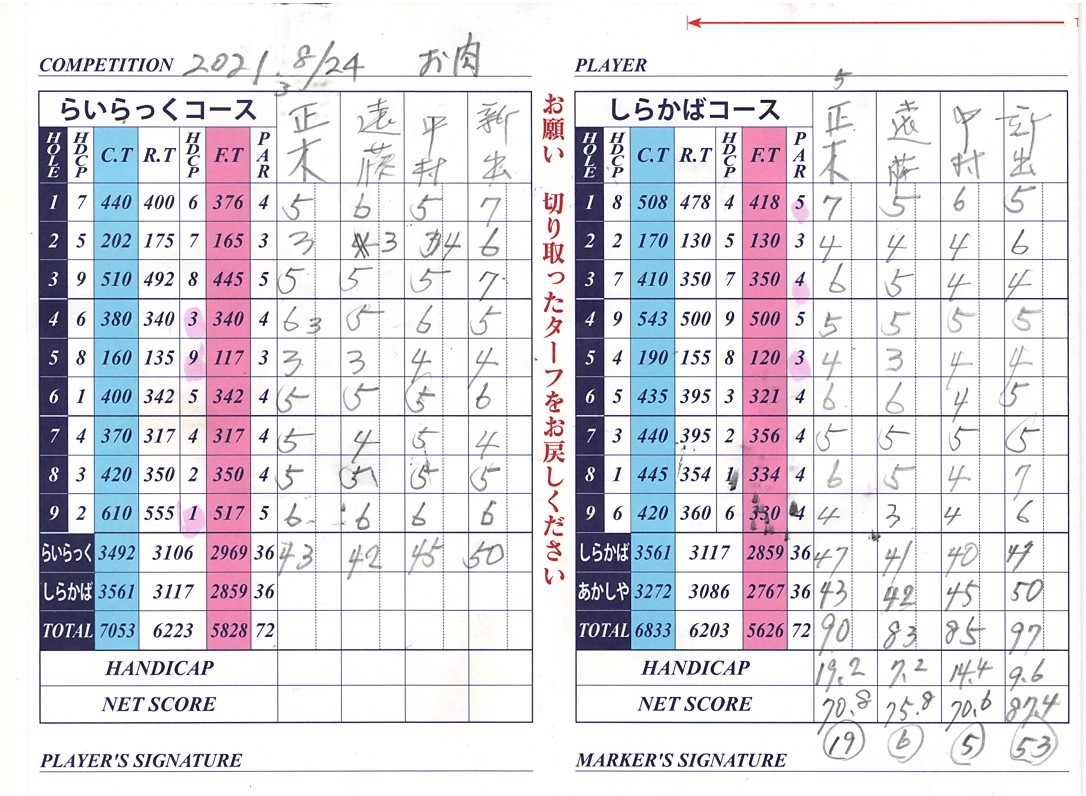 COMPETITION 2021. 8/24 お肉
らいらっくコース 正木 遠藤 中村 新出
HOLE HDCP C.T R.T HDCP F.T PAR
1 7 440 400 6 376 4 5 6 5 7
2 5 202 175 7 165 3 3 3 4 6
3 9 510 492 8 445 5 5 5 5 7
4 6 380 340 3 340 4 6 3 5 6 5
5 8 160 135 9 117 3 3 3 4 4
6 1 400 342 5 342 4 5 5 5 6
7 4 370 317 4 317 4 5 4 5 4
8 3 420 350 2 350 4 5 5 5 5
9 2 610 555 1 517 5 6 6 6 6
らいらっく 3492 3106 2969 36 43 42 45 50
しらかば 3561 3117 2859 36
TOTAL 7053 6223 5828 72
HANDICAP
NET SCORE
PLAYER'S SIGNATURE
お願い 切り取ったターフをお戻しください
PLAYER
5
しらかばコース 正木 遠藤 中村 新出
HOLE HDCP C.T R.T HDCP F.T PAR
1 8 508 478 4 418 5 7 5 6 5
2 2 170 130 5 130 3 4 4 4 6
3 7 410 350 7 350 4 6 5 4 4
4 9 543 500 9 500 5 5 5 5 5
5 4 190 155 8 120 3 4 3 4 4
6 5 435 395 3 321 4 6 6 4 5
7 3 440 395 2 356 4 5 5 5 5
8 1 445 354 1 334 4 6 5 4 7
9 6 420 360 6 330 4 4 3 4 6
しらかば 3561 3117 2859 36 47 41 40 47
あかしや 3272 3086 2767 36 43 42 45 50
TOTAL 6833 6203 5626 72 90 83 85 97
HANDICAP 19.2 7.2 14.4 9.6
NET SCORE 70.8 75.8 70.6 87.4
19 6 5 53
MARKER'S SIGNATURE